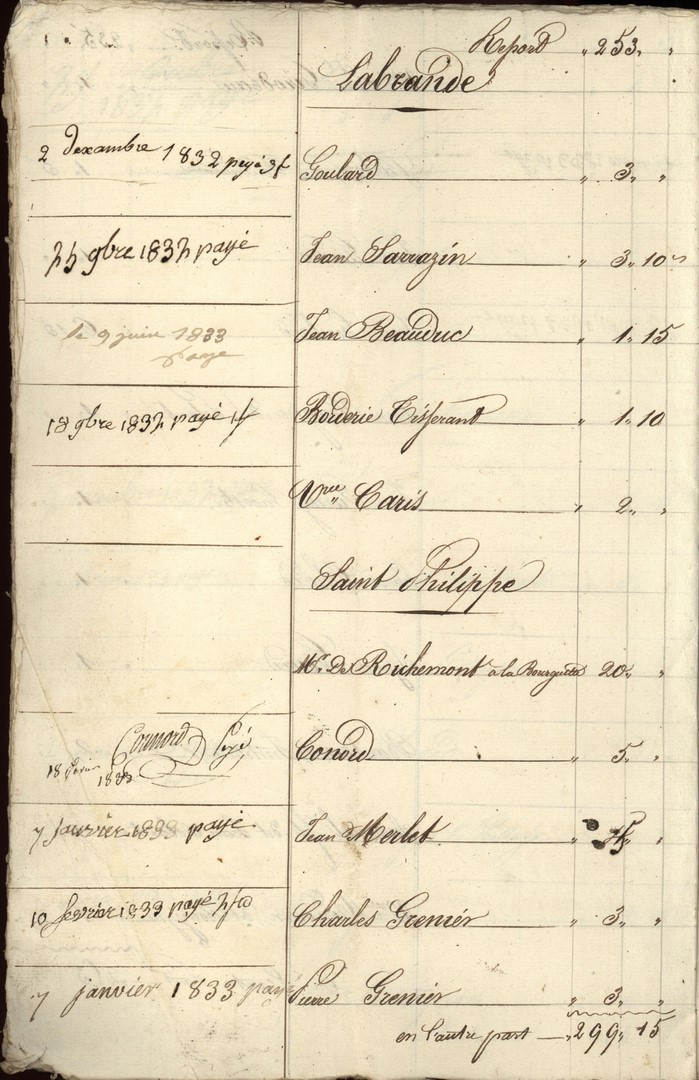 Report " 253 " "
Labrande
2 dexambre 1832 payé 3f Goulard " 3 " "
25 9bre 1832 payé Jean Sarrazin " 3 " 10
le 9 juin 1833 Jean Beauduc " 1 " 15
paye
18 9bre 1832 payé Borderie Tisserant " 1 " 10
Vve Caris " 2 " "
Saint Philippe
Mr De Richemont à la 20 " "
Conord Payé Conord " 5 " "
18 1833
7 janvier 1833 payé Jean Merlet " "
10 fevriér 1833 payé Charles Greniér " 3 " "
7 janviér 1833 payé Pierre Greniér " 3 " "
en l'autre part " 299 " 15